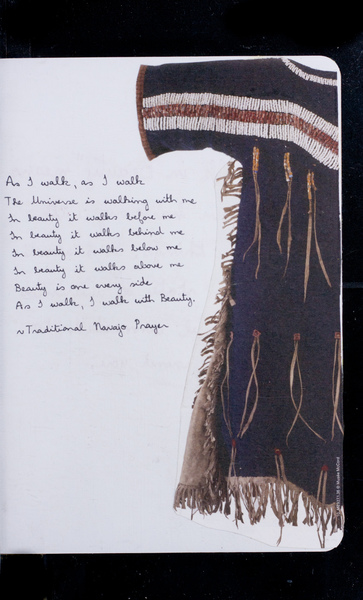 As I walk, as I walk
The Universe is walking with me
In beauty it walks before me
In beauty it walks behind me
In beauty it walks below me
In beauty it walks above me
Beauty is one every side
As I walk, I walk with Beauty.
~Traditional Navajo Prayer